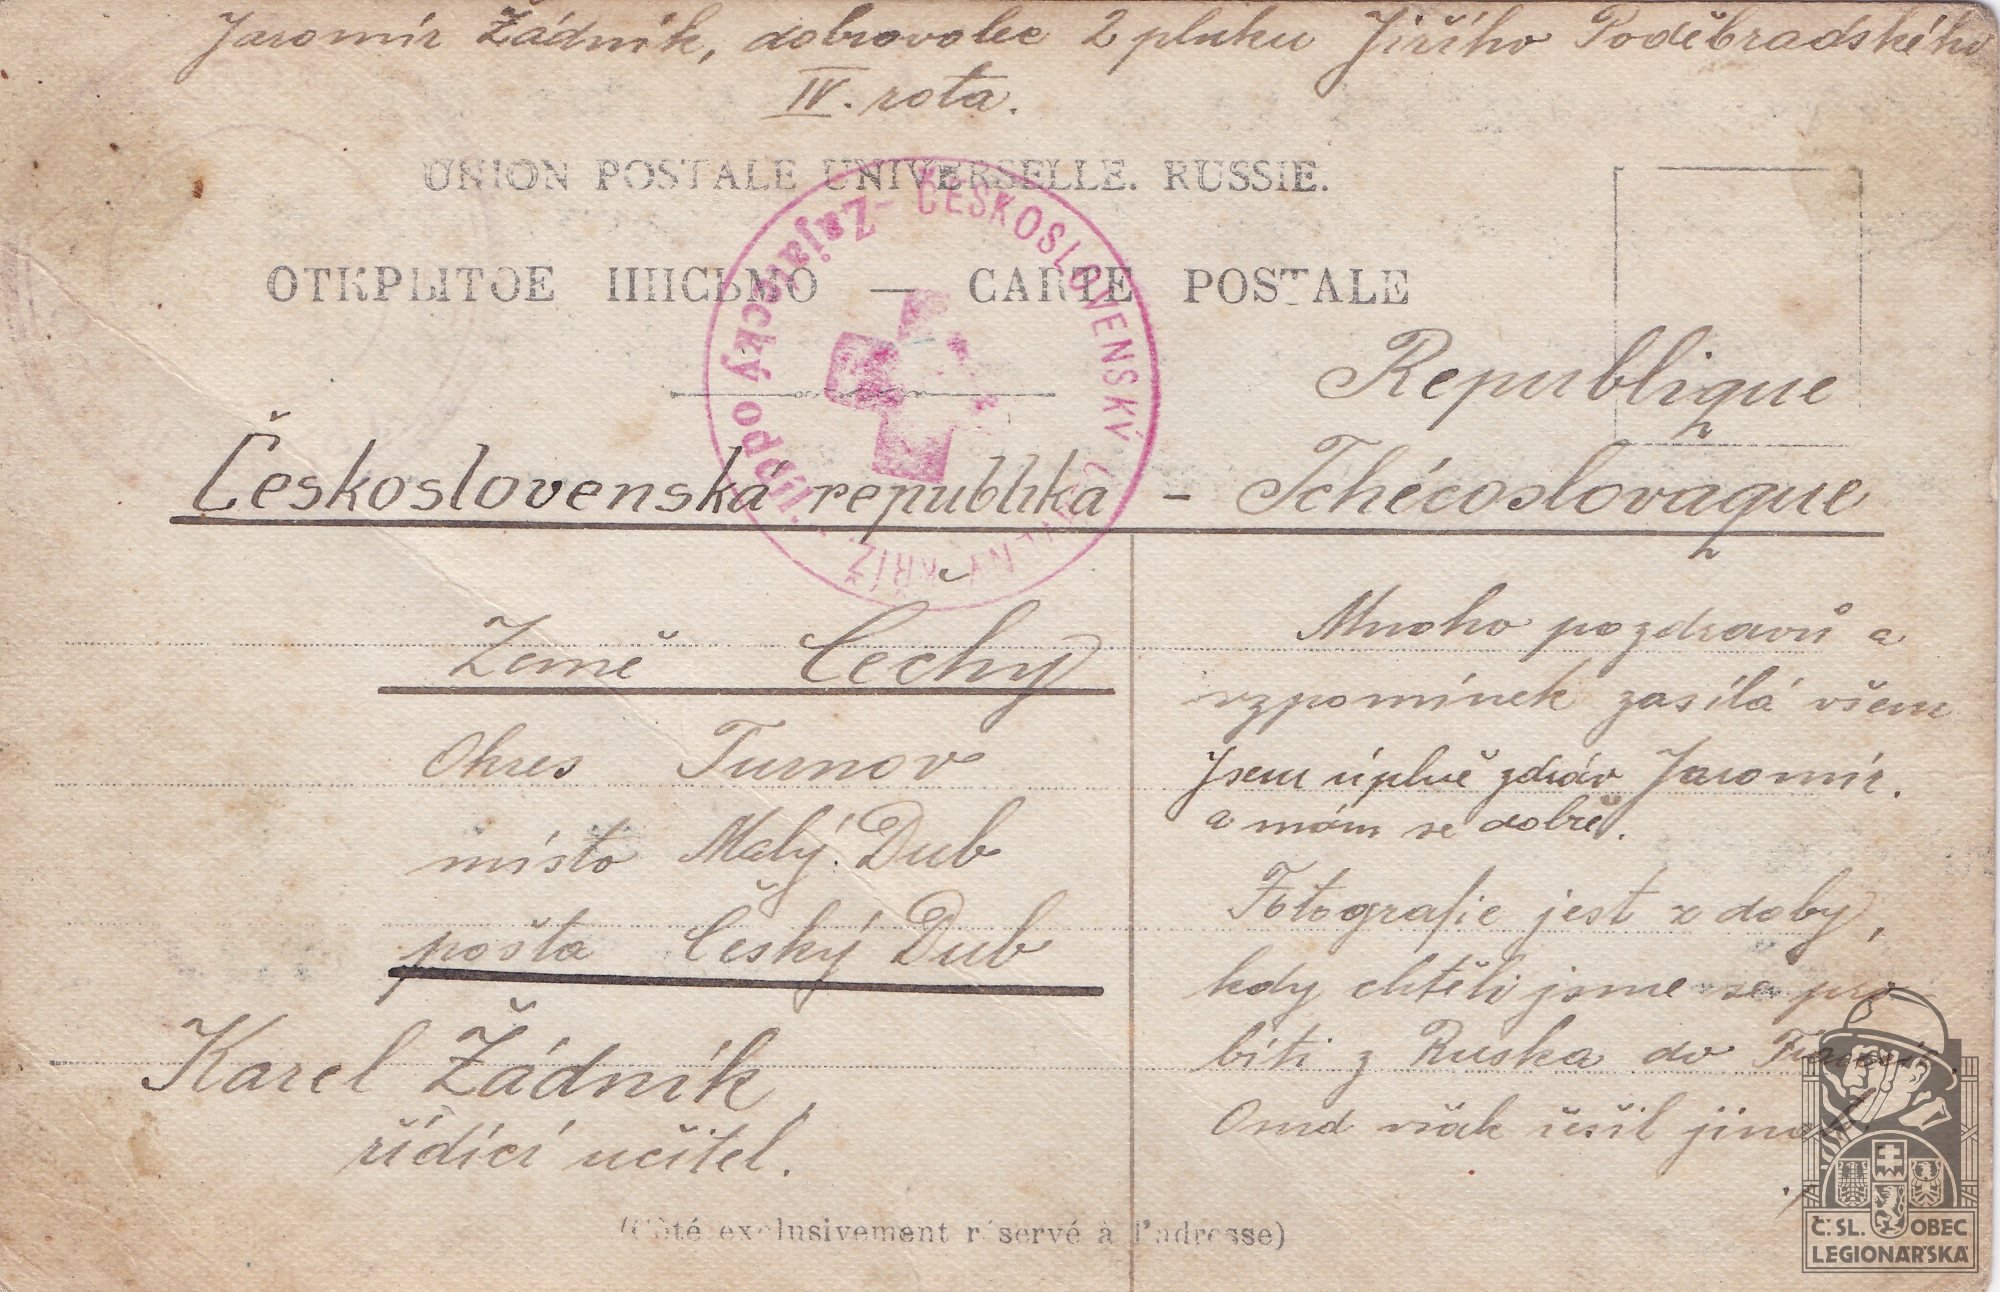 Jaromír Žádník, dobrovolec 2 pluku Jiřího Poděbradského
IV. rota.
UNION POSTALE UNIVERSELLE. RUSSIE.
ОТКРЫТОЕ ПИСЬМО — CARTE POSTALE
ČESKOSLOVENSKÝ ČERVENÝ KŘÍŽ
Zajatecký oddíl.
Republique
Československá republika - Tchécoslovaque
Země Čechy
Okres Turnov
místo Malý Dub
pošta Český Dub
Karel Žádník,
řídící učitel.
Mnoho pozdravů a
vzpomínek zasílá všem
Jsem úplně zdráv Jaromír.
a mám se dobře.
Fotografie jest z doby,
kdy chtěli jsme se pro
bíti z Ruska do Francie.
Osud však řešil jinak
(Côté exclusivement réservé à l'adresse)
Č.SL. OBEC
LEGIONÁŘSKÁ